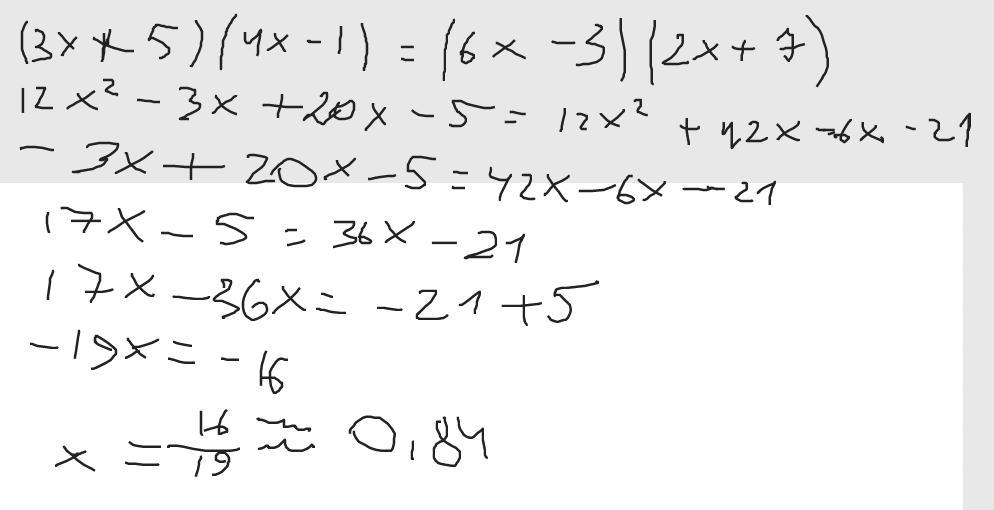 (3x + 5)(4x - 1) = (6x - 3)(2x + 7)
12x² - 3x + 20x - 5 = 12x² + 42x - 6x - 21
- 3x + 20x - 5 = 42x - 6x - 21
17x - 5 = 36x - 21
17x - 36x = - 21 + 5
- 19x = - 16
x = 16/19 ≈ 0,84